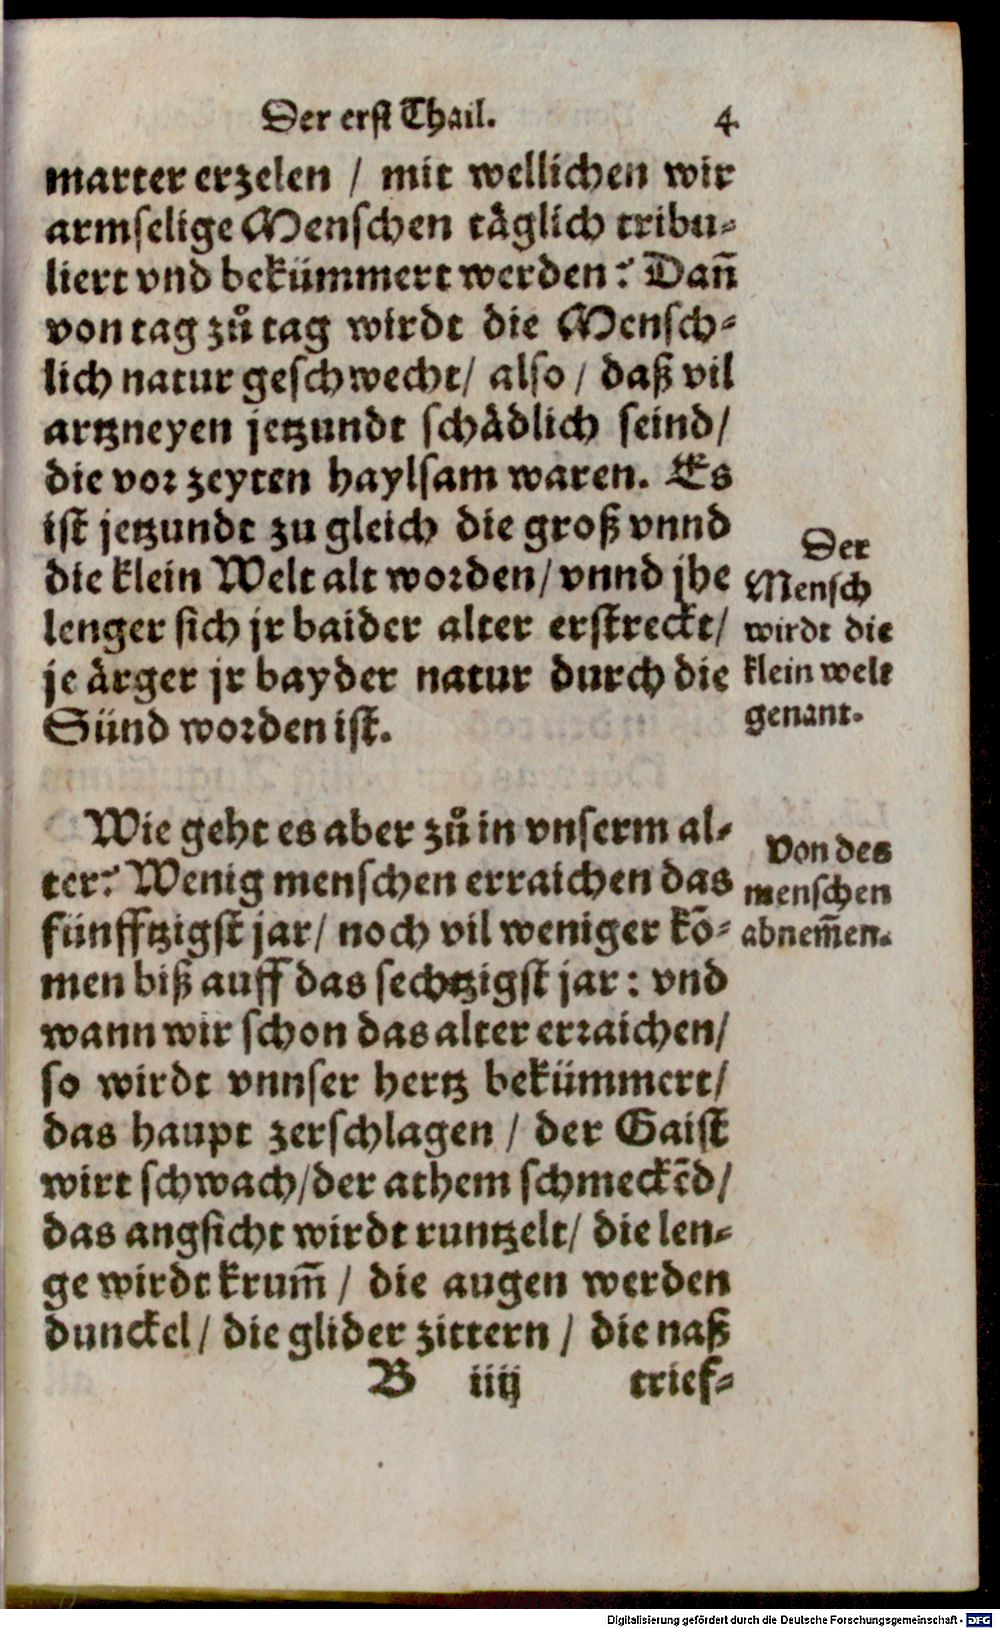 Der erst Thail. 4
marter erzelen / mit wellichen wir
armselige Menschen täglich tribu-
liert vnd bekümmert werden? Dañ
von tag zů tag wirdt die Mensch-
lich natur geschwecht/ also / daß vil
artzneyen jetzundt schädlich seind/
die vor zeyten haylsam waren. Es
ist jetzundt zu gleich die groß vnnd
die klein Welt alt worden/ vnnd jhe
lenger sich jr baider alter erstreckt/
je ärger jr bayder natur durch die
Sünd worden ist.
Der
Mensch
wirdt die
klein welt
genant.
Wie geht es aber zů in vnserm al-
ter? Wenig menschen erraichen das
fünfftzigst jar/ noch vil weniger kõ-
men biß auff das sechtzigst jar: vnd
wann wir schon das alter erraichen/
so wirdt vnnser hertz bekümmert/
das haupt zerschlagen / der Gaist
wirt schwach/der athem schmeckẽd/
das angsicht wirdt runtzelt/ die len-
ge wirdt krum̃ / die augen werden
dunckel/ die glider zittern / die naß
Von des
menschen
abnem̃en.
B iiij trief-
Digitalisierung gefördert durch die Deutsche Forschungsgemeinschaft - DFG